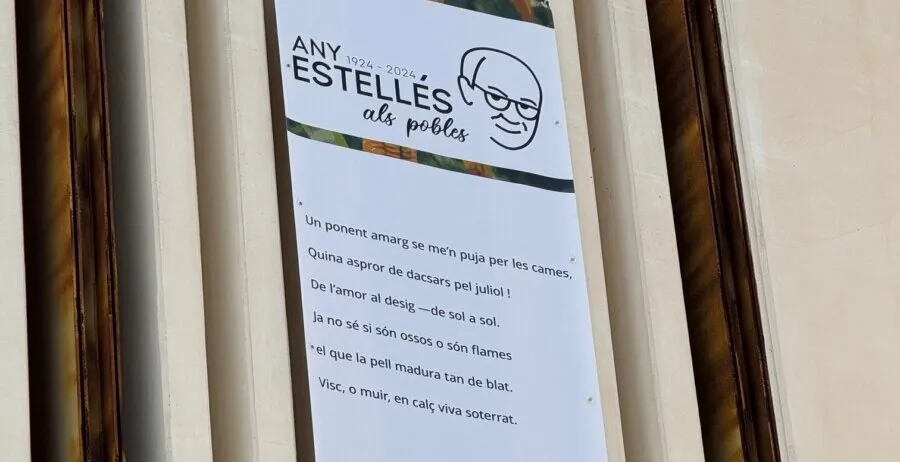 ANY
1924 - 2024
ESTELLÉS
als pobles
Un ponent amarg se me'n puja per les cames,
Quina aspror de dacsars pel juliol !
De l'amor al desig —de sol a sol.
Ja no sé si són ossos o són flames
el que la pell madura tan de blat.
Visc, o muir, en calç viva soterrat.